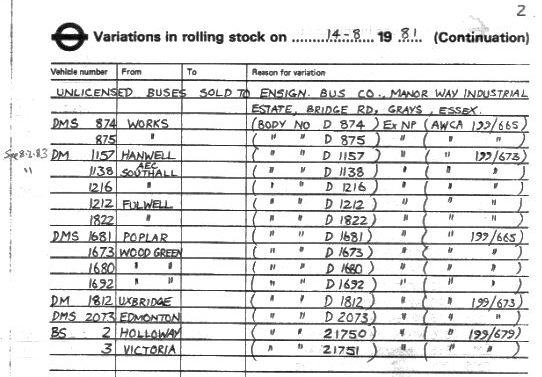 2
Variations in rolling stock on 14-8 19 81 (Continuation)
Vehicle number From To Reason for variation
UNLICENSED BUSES SOLD TO ENSIGN. BUS CO., MANOR WAY INDUSTRIAL
ESTATE, BRIDGE RD, GRAYS, ESSEX.
DMS 874 WORKS (BODY NO D 874) Ex NP (AWCA 199/665)
875 " ( " " D 875 ) " ( " " )
See 8-2-83 DM 1157 HANWELL ( " " D 1157 ) " ( " 199/673)
" 1138 AEC SOUTHALL ( " " D 1138 ) " ( " " )
1216 " ( " " D 1216 ) " ( " " )
1212 FULWELL ( " " D 1212 ) " ( " " )
1822 " ( " " D 1822 ) " ( " " )
DMS 1681 POPLAR ( " " D 1681 ) " ( " 199/665)
1673 WOOD GREEN ( " " D 1673 ) " ( " " )
1680 " " ( " " D 1680 ) " ( " " )
1692 " " ( " " D 1692 ) " ( " " )
DM 1812 UXBRIDGE ( " " D 1812 ) " ( " 199/673)
DMS 2073 EDMONTON ( " " D 2073 ) " ( " " )
BS 2 HOLLOWAY ( " " 21750 ) " ( " 199/679)
3 VICTORIA ( " " 21751 ) " ( " " )